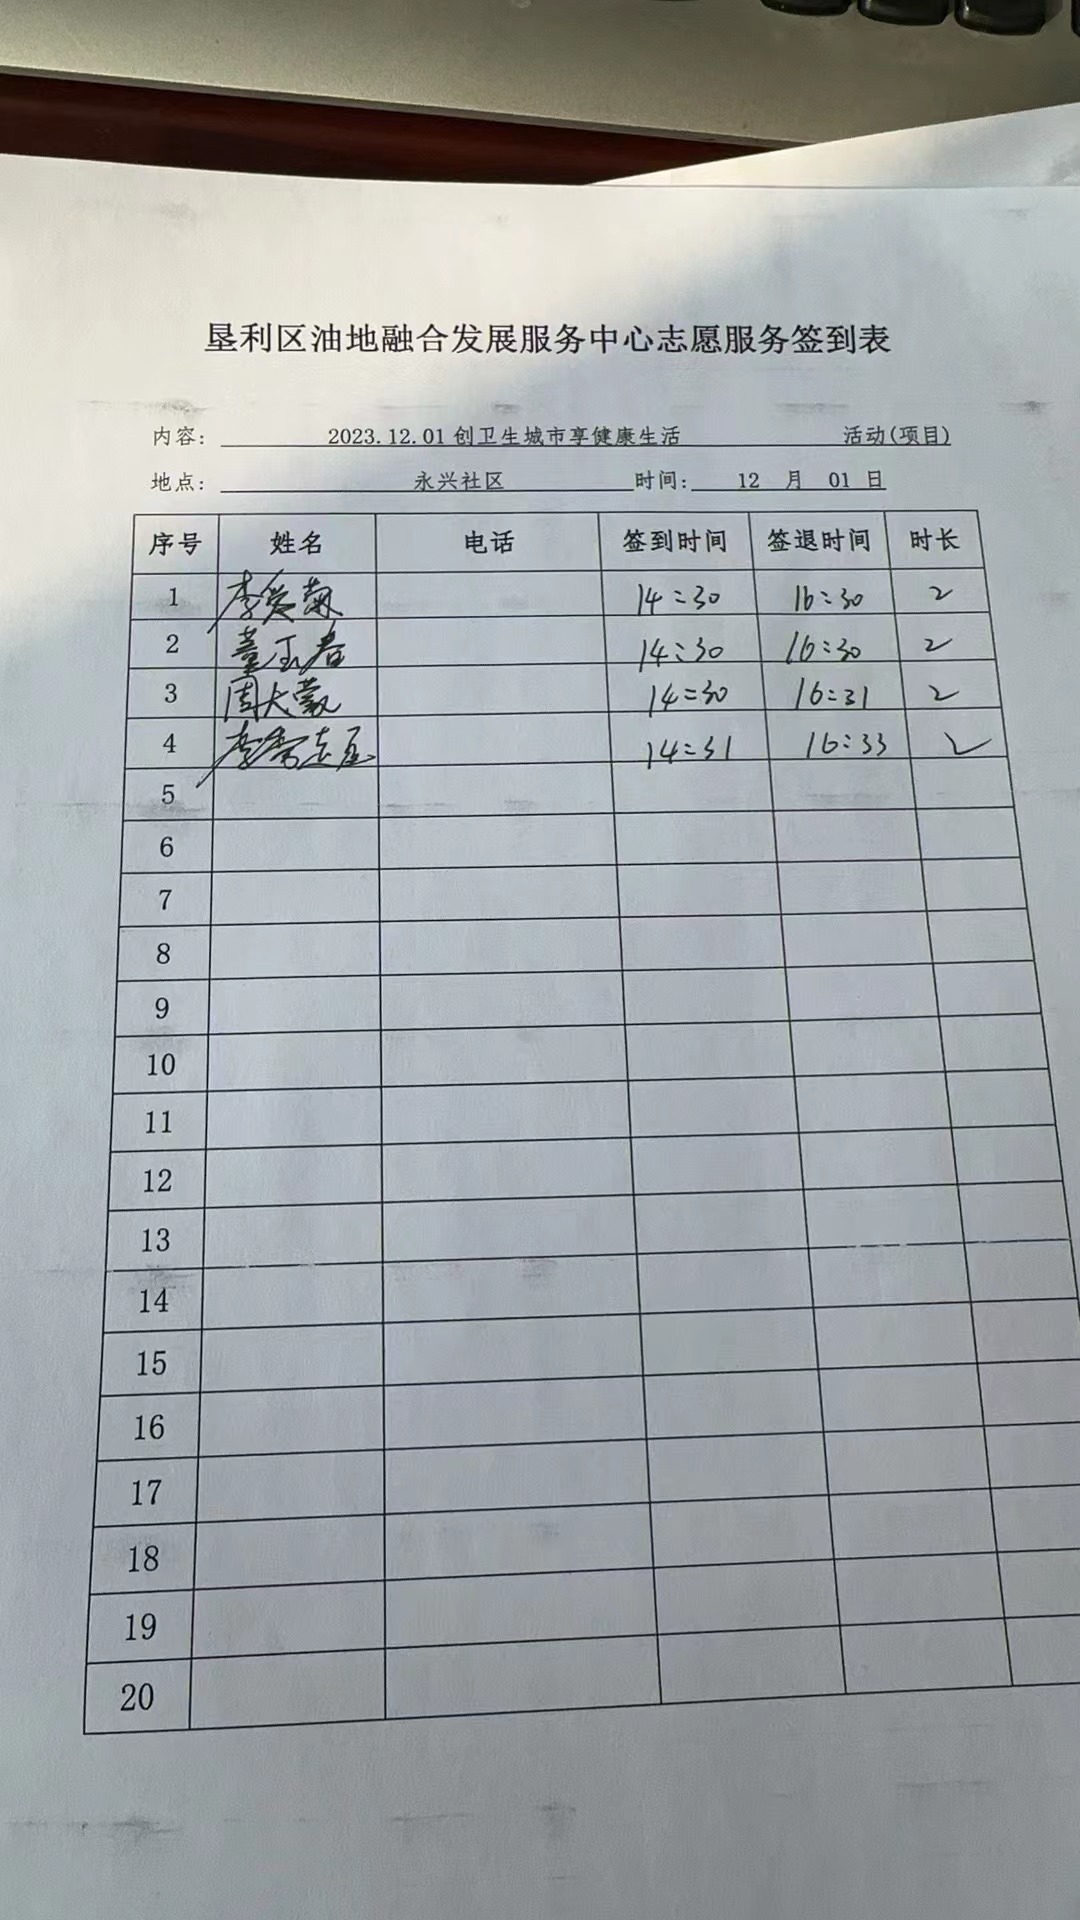 垦利区油地融合发展服务中心志愿服务签到表
内容: 2023.12.01创卫生城市享健康生活 活动(项目)
地点: 永兴社区 时间: 12 月 01 日
序号 姓名 电话 签到时间 签退时间 时长
1 李爱菊 14:30 16:30 2
2 董玉春 14:30 16:30 2
3 周大蒙 14:30 16:31 2
4 14:31 16:33 2
5
6
7
8
9
10
11
12
13
14
15
16
17
18
19
20